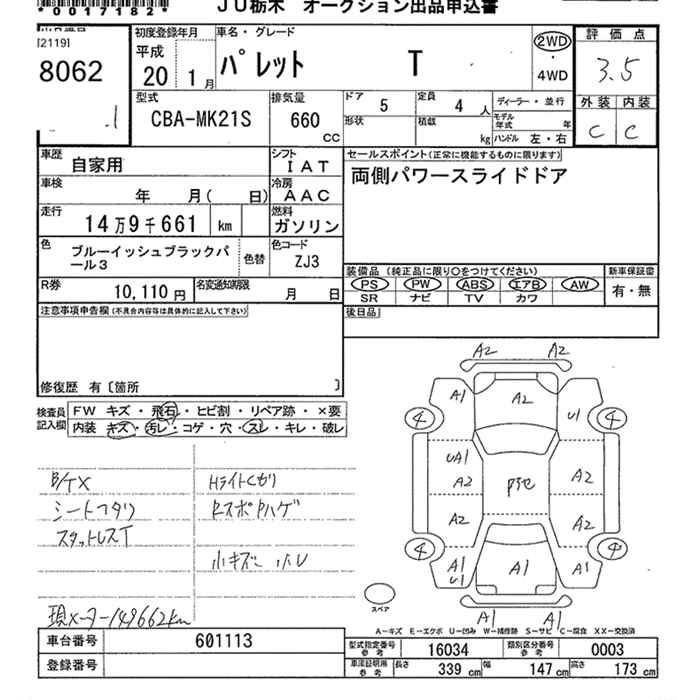 *0017182*
JU栃木 オークション出品申込書
[2119]
8062
初度登録年月
平成
20年 1月
車名・グレード
パレット T
2WD
・
4WD
評価点
3.5
外装 内装
C C
型式
CBA-MK21S
排気量
660
CC
ドア
5
定員
4人
ディーラー・並行
形状
積載
kg
モデル年式 年
ハンドル 左・右
車歴
自家用
シフト
IAT
車検
年 月( 日)
冷房
AAC
走行
14万9千661 km
燃料
ガソリン
色
ブルーイッシュブラックパール3
色替
色コード
ZJ3
R券
10,110円
名変通知期限
月 日
セールスポイント(正常に機能するものに限ります)
両側パワースライドドア
装備品(純正品に限り○をつけてください)
PS PW ABS エアB AW
SR ナビ TV カワ
新車保証書
有・無
後日品
注意事項申告欄(不具合内容等は具体的に記入して下さい)
修復歴 有〔箇所 〕
検査員記入欄
FW キズ・飛石・ヒビ割・リペア跡・×要
内装 キズ・汚レ・コゲ・穴・スレ・キレ・破レ
シートヘタリ
スタットレスT
現メーター149662km
Hライトくもり
小キズ 小凹
A2 A2
A1 A2 U1
4 4
UA1
A2 A2
A2 A2
4 4
A1
U1 A1 A1
A1 A1
スペア
A-キズ E-エクボ U-凹み W-補修跡 S-サビ C-腐食 XX-交換済
車台番号 601113
登録番号
型式指定番号 参考 16034
類別区分番号 参考 0003
車庫証明用 参考 長さ 339cm 幅 147cm 高さ 173cm